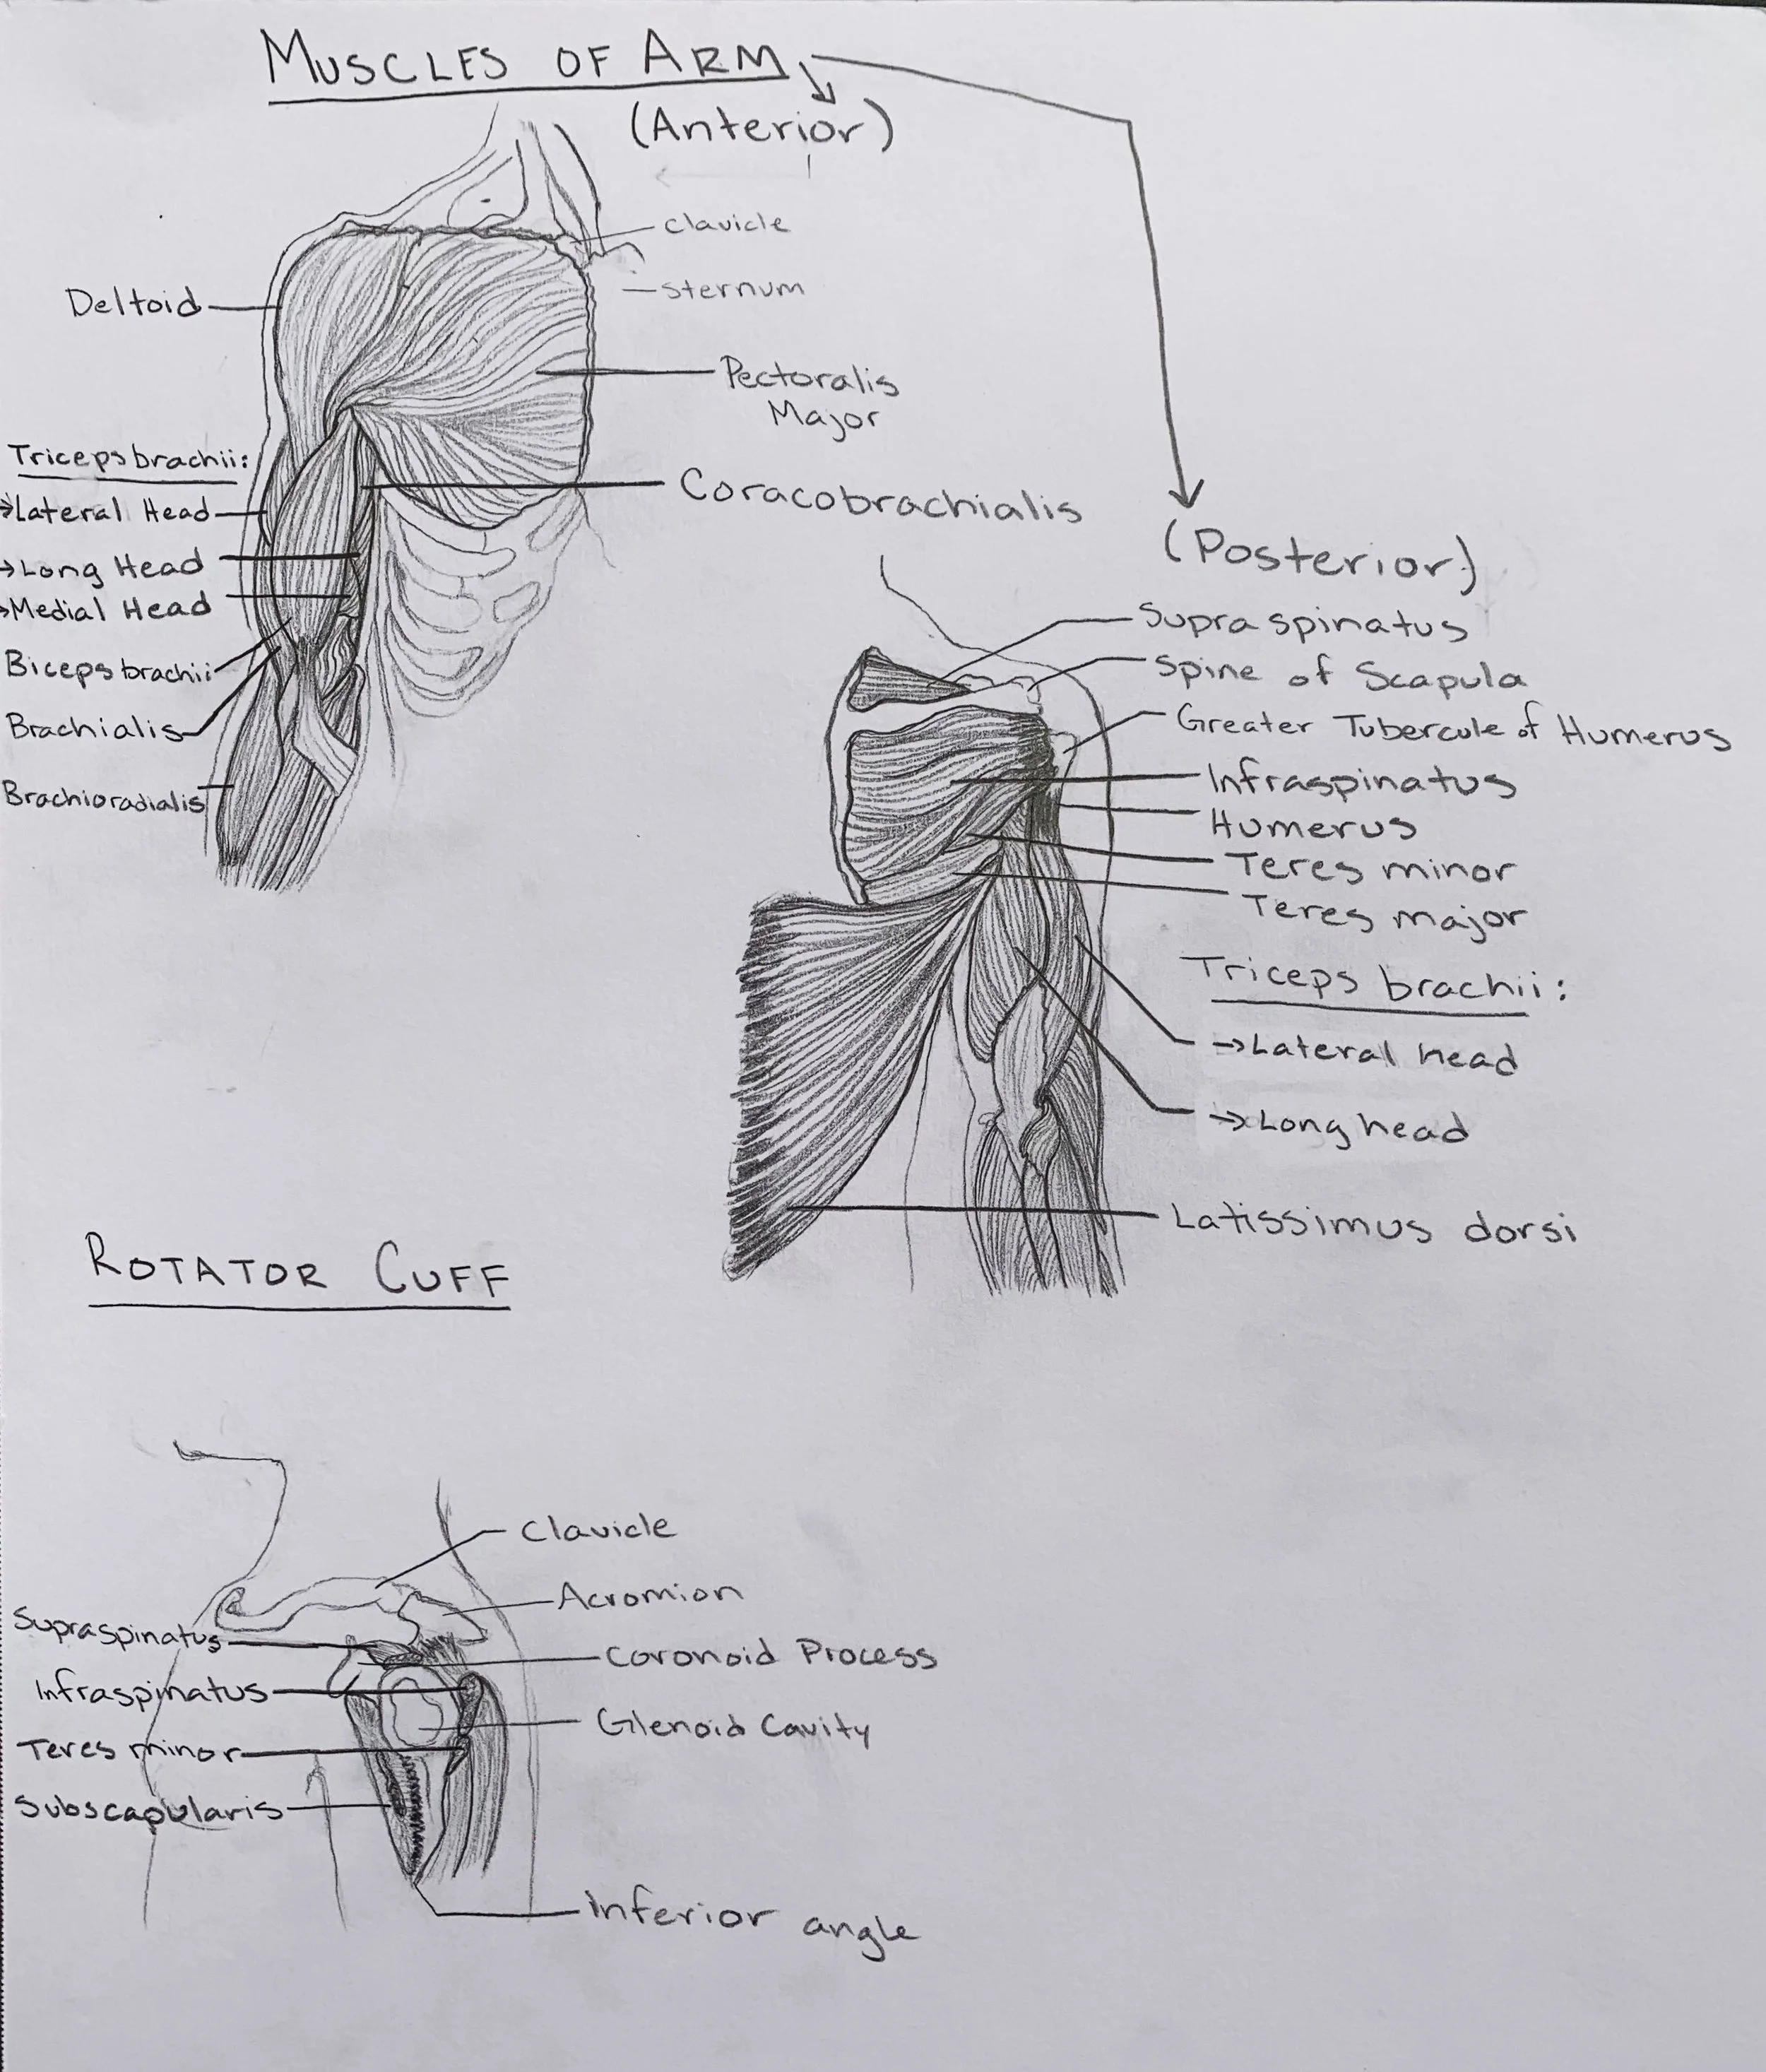 MUSCLES OF ARM
(Anterior)
clavicle
sternum
Deltoid
Pectoralis
Major
Triceps brachii:
→Lateral Head
→Long Head
→Medial Head
Coracobrachialis
Biceps brachii
Brachialis
Brachioradialis
(Posterior)
Supraspinatus
Spine of Scapula
Greater Tubercule of Humerus
Infraspinatus
Humerus
Teres minor
Teres major
Triceps brachii:
→Lateral head
→Long head
Latissimus dorsi
ROTATOR CUFF
Clavicle
Acromion
Supraspinatus
Coronoid Process
Infraspinatus
Glenoid Cavity
Teres minor
Subscapularis
Inferior angle